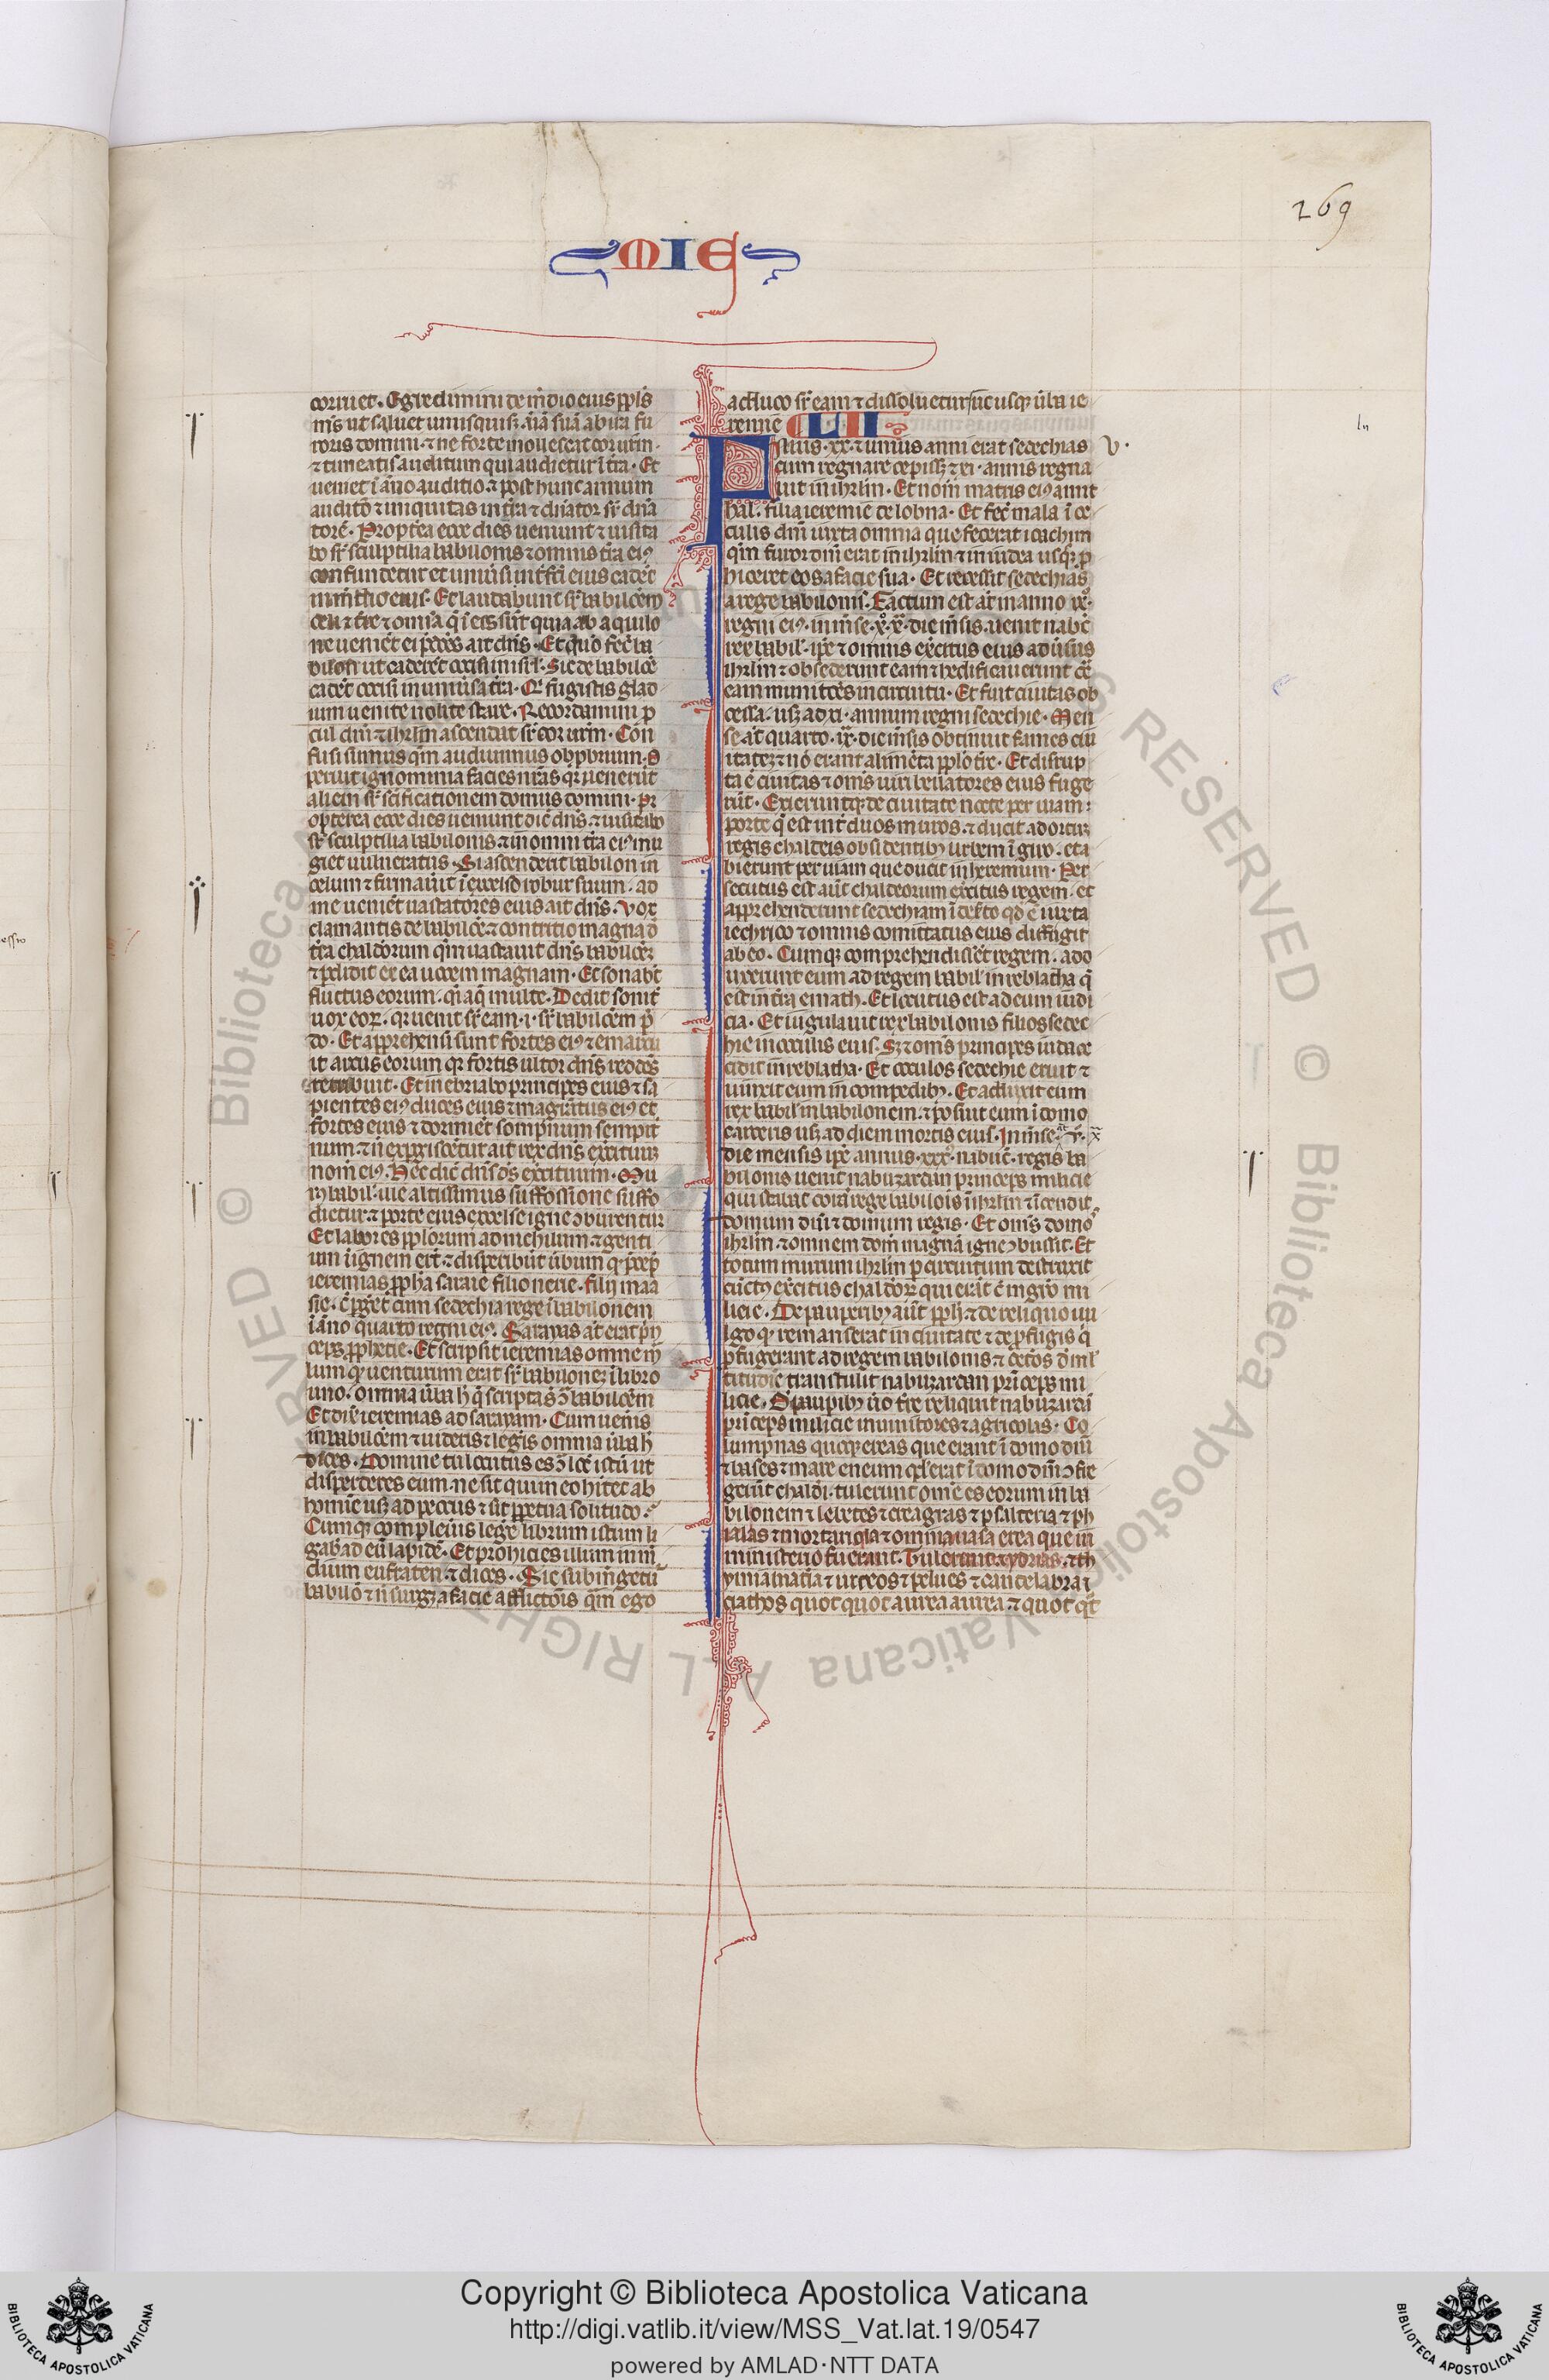 269
MIE
corruet. Egredimini de medio eius pplꝰ
mꝰ ut saluet unusquisqꝫ aīā suā ab ira fu
roris domini. ⁊ ne forte mollescat cor ur̄m.
⁊ timeatis auditum qui audietur ī t̄ra. Et
ueniet ī āno auditio. ⁊ post hunc annum
auditō ⁊ iniquitas in t̄ra ⁊ dn̄ator sr̄ dn̄a
torē. Propt̄ea ecce dies ueniunt ⁊ uisita
bo sr̄ sculptilia babilonis ⁊ omnis t̄ra eiꝰ
confundetur et uniūsi int̄fc̄i eius cadēt
in medio eius. Et laudabunt sr̄ babilonem
celi ⁊ t̄re ⁊ omīa q̄ ī eis sūt quia ab aquilo
ne ueniēt ei p̄dōes ait dn̄s. Et quō fec̄ ba
bilon ut caderēt occisi in isrl̄. Sic de babilōe
cadēt occisi in uniūsa t̄ra. Qͥ fugistis glad
ium uenite nolite stare. Recordamini p
cul dn̄i ⁊ ihrlm̄ ascendat sr̄ cor ur̄m. Con
fusi sumus qm̄ audiuimus obprobrium. O
peruit ignominia facies nr̄as qꝛ uenerūt
alieni sr̄ sc̄ificationem domus domini. Pr
opterea ecce dies ueniunt dic̄ dn̄s. ⁊ uisitabo
sr̄ sculptilia babilonis. ⁊ in omni t̄ra eiꝰ mu
giet uulneratus. Si ascenderit babilon in
celum ⁊ firmauit ī excelso robur suum. a
me ueniēt uastatores eius ait dn̄s. Vox
clamantis de babilōe. ⁊ contritio magna d̄
t̄ra chaldeorum qm̄ uastauit dn̄s babilonē
⁊ p̄didit ex ea uocem magnam. Et sonabt̄
fluctus eorum. qͣi aq̄ multe. Dedit sonit̄
uox eoꝝ. qꝛ uenit sr̄ eam. i. sr̄ babilonem p̄
do. Et apprehensi sunt fortes eiꝰ ⁊ emarcu
it arcus eorum qꝛ fortis ultor dn̄s reddēs
retribuit. Et inebriabo principes eius ⁊ sa
pientes eiꝰ duces eius ⁊ magr̄atus eiꝰ et
fortes eius ⁊ dormiēt sompnum sempit̄
num. ⁊ n̄ expgiscētur ait rex dn̄s ex̄cituum
nom̄ eiꝰ. Hec dic̄ dn̄s ds̄ ex̄cituum. Mu
rꝰ babil̄. ille altissimus suffossione suffo
dietur. ⁊ porte eius excelse igne ꝯburentur
Et labores pplorum ad nichilum ⁊ genti
um ī ignem erūt ⁊ disperibūt. Ūbum qͦ precep̄
ieremias ppha saraie filio nerie. filii maa
sie. cū pget cum sedechia rege ī babilonem
ī āno quarto regni eiꝰ. Saraias aūt erat p̄n
ceps pphetie. Et scripsit ieremias omne m̄
lum qͦ uenturum erat sr̄ babilonē ī libro
uno. omnia ūba h̄ q̄ scripta sūt ꝯ̄ babilōem
Et dix̄ ieremias ad saraiam. Cum uenis
in babilōem ⁊ uideris ⁊ legis omnia ūba h̄
dices. Domine tu locutus es ꝯ̄ locū istū ut
disperderes eum. ne sit qui in eo hitet ab
homīe usqꝫ ad pecus ⁊ ut sit ppetua solitudo.
Cumqꝫ compleuis leḡe librum istum li
gab̄ ad eū lapidē. Et prohicies illum in m̄
dium eufraten. ⁊ dices. Sic submergetur
babilō ⁊ n̄ surgꝫ a facie afflictōis qm̄ ego
adduco sr̄ eam ⁊ dissoluetur hucusqꝫ ūba ie
remie LII
Filius .xx. ⁊ unius anni erat sedechias
cum regnare cepissꝫ ⁊ xi. annis regna
uit in ihrlm̄. Et nom̄ matris eiꝰ amit
hal̄. filia ieremie de lobna. Et fec̄ mala ī o
culis dn̄i iuxta omnia que fecerat ioachim
qm̄ furor dn̄i erat in ihrlm̄ ⁊ in iudea usqꝫ p
hiceret eos a facie sua. Et recessit sedechias
a rege babilonis. Factum est aūt in anno ixͦ.
regni eiꝰ. in mense .xͦ. xͣ. die mensis. uenit nabc̄
rex babil̄. ipe ⁊ omnis ex̄citus eius aduūsus
ihrlm̄ ⁊ obsederunt eam ⁊ hedificauerunt cͣ
eam munitōes in circuitu. Et fuit ciuitas ob
cessa. usqꝫ ad xi. annum regni sedechie. Men
se aūt quarto. ixͣ. die mensis obtinuit fames ciu
itatem ⁊ nō erant alimēta pplo t̄re. Et disrup
ta ē ciuitas ⁊ omēs uiri bellatores eius fuge
rūt. Exieruntqꝫ de ciuitate nocte per uiam.
porte q̄ est int̄ duos muros. ⁊ ducit ad ortum
regis chaldeis obsidentibꝫ urbem ī giro. et a
bierunt per uiam que ducit in heremum. Per
secutus est aūt chaldeorum ex̄citus regem. et
apprehenderunt sedechiam ī deserto qd̄ ē iuxta
iechrico ⁊ omnis comittatus eius diffugit
ab eo. Cumqꝫ comprehendissēt regem. add
uxerunt eum ad regem babil̄ in reblatha q̄
est in t̄ra emath. Et locutus est ad eum iudi
cia. Et iugulauit rex babilonis filios sedec
hie in occulis eius. Sꝫ ⁊ omēs principes iude oc
cidit in reblatha. Et occulos sedechie eruit ⁊
uinxit eum in compedibꝫ. Et adduxit eum
rex babil̄ in babilonem. ⁊ posuit eum ī domo
carceris usqꝫ ad diem mortis eius. In mense
die mensis ipe annus .xixͦ. nabuc̄. regis ba
bilonis uenit nabuzardan princeps milicie
qui stabat corā rege babilōis ī ihrlm̄ ⁊ īcendit
domum dn̄i ⁊ domum regis. Et omēs domos
ihrlm̄. ⁊ omnem dom̄ magnā igne ꝯbussit. Et
totum murum ihrlm̄ p circuitum destruxit
cūctꝰ ex̄citus chaldeoꝝ qui erāt cū mgr̄o mi
licie. De pauperibꝫ aūt ppli ⁊ de reliquo uu
lgo qͦ remanserat in ciuitate ⁊ de pfugis q̄
pfugerant ad regem babilonis. ⁊ cet̄os de ml̄
titudīe transtulit nabuzardan prīceps mi
licie. De paupibꝫ uō t̄re reliquit nabuzardā
prīceps milicie in uinitores ⁊ agricolas. Co
lumpnas quoqꝫ ereas que erant ī domo dn̄i
⁊ bases ⁊ mare eneum qd̄ erat ī domo dn̄i ꝯfre
gerūt chaldei. ⁊ tulerunt omē es eorum in ba
bilonem ⁊ lebetes ⁊ creagras ⁊ psalteria ⁊ ph
ialas ⁊ mortariola ⁊ omnia uasa erea que in
ministerio fuerant. Tulerunt ⁊ ydrias. ⁊ th
ymiamatīa ⁊ urceos ⁊ pelues ⁊ candelabra ⁊
ciathos quot quot aurea aurea. ⁊ quot qͦt
V.
Copyright © Biblioteca Apostolica Vaticana
http://digi.vatlib.it/view/MSS_Vat.lat.19/0547
powered by AMLAD·NTT DATA
BIBLIOTECA APOSTOLICA VATICANA
BIBLIOTECA APOSTOLICA VATICANA
© Biblioteca Apostolica Vaticana ALL RIGHTS RESERVED